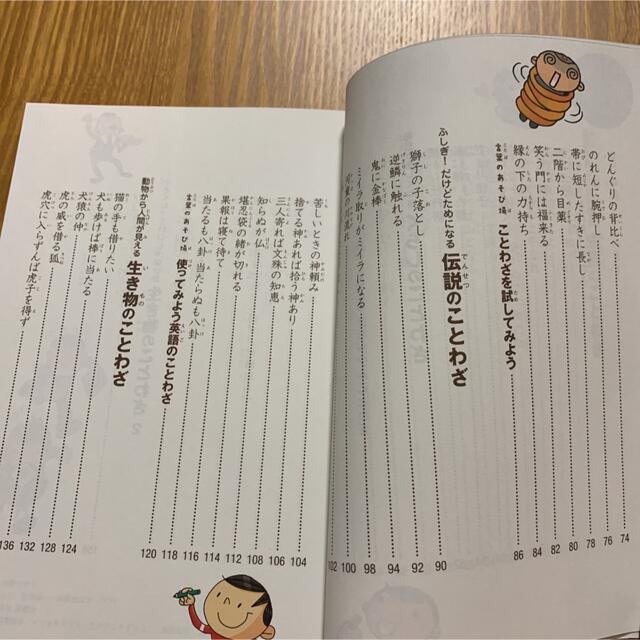 どんぐりの背比べ 74
のれんに腕押し 76
帯に短したすきに長し 78
二階から目薬 80
笑う門には福来る 82
縁の下の力持ち 84
言葉のあそび場 ことわざを試してみよう 86
ふしぎ!だけどためになる 伝説のことわざ
獅子の子落とし 90
逆鱗に触れる 92
鬼に金棒 94
ミイラ取りがミイラになる 98
の川流れ 100
102
苦しいときの神頼み 104
捨てる神あれば拾う神あり 106
三人寄れば文殊の知恵 108
知らぬが仏 110
堪忍袋の緒が切れる 112
果報は寝て待て 114
当たるも八卦 当たらぬも八卦 116
言葉のあそび場 使ってみよう英語のことわざ 118
120
動物から人間が見える 生き物のことわざ
猫の手も借りたい 124
犬も歩けば棒に当たる 128
犬猿の仲 132
虎の威を借る狐 136
虎穴に入らずんば虎子を得ず